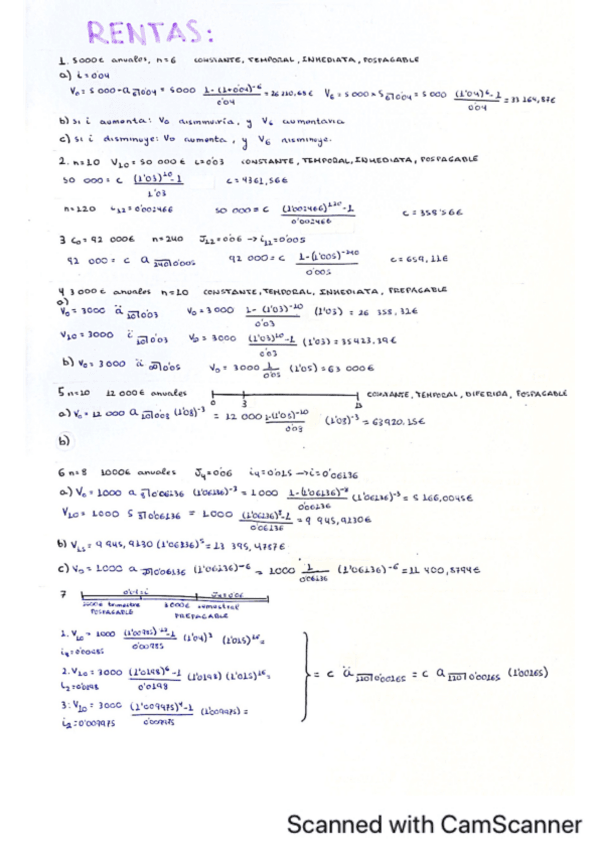 RENTAS:
1. 5000€ anuales, n=6 CONSTANTE, TEMPORAL, INMEDIATA, POSPAGABLE
a) i=0'04
V₀= 5000·a 6⅂0'04 = 5000 (1-(1+0'04)^-6)/0'04 = 26 210,68€ V₆= 5000 x S 6⅂0'04 = 5000 ((1'04)^6-1)/0'04 = 33 164,87€
b) si i aumenta: V₀ disminuiría, y V₆ aumentaría
c) si i disminuye: V₀ aumenta, y V₆ disminuye.
2. n=10 V₁₀= 50 000€ i=0'03 CONSTANTE, TEMPORAL, INMEDIATA, POSPAGABLE
50 000= c ((1'03)^10-1)/1'03 c= 4361,56€
n=120 i₁₂=0'002466 50 000= c ((1'002466)^120-1)/0'002466 c= 358'56€
3 C₀= 92 000€ n=240 J₁₂=0'06 → i₁₂=0'005
92 000= c a 240⅂0'005 92 000= c (1-(1'005)^-240)/0'005 c= 659,11€
4 3000€ anuales n=10 CONSTANTE, TEMPORAL, INMEDIATA, PREPAGABLE
a)
V₀= 3000 ä 10⅂0'03 V₀= 3000 (1-(1'03)^-10)/0'03 (1'03) = 26 358,32€
V₁₀= 3000 10⅂0'03 V₀= 3000 ((1'03)^10-1)/0'03 (1'03) = 35423,39€
b) V₀= 3000 ä ∞⅂0'05 V₀= 3000 1/0'05 (1'05) = 63 000€
5 n=10 12 000€ anuales 0 3 13 CONSTANTE, TEMPORAL, DIFERIDA, POSPAGABLE
a) V₀= 12 000 a 10⅂0'03 (1'03)^-3 = 12 000 (1-(1'03)^-10)/0'03 (1'03)^-3 = 63920,15€
b)
6 n=8 1000€ anuales J₄=0'06 i₄=0'015 → i=0'06136
a) V₀= 1000 a 8⅂0'06136 (1'06136)^-3 = 1000 (1-(1'06136)^-8)/0'06136 (1'06136)^-3 = 5 166,0045€
V₁₀= 1000 S 8⅂0'06136 = 1000 ((1'06136)^8-1)/0'06136 = 9 945,9130€
b) V₁₃= 9 945,9130 (1'06136)^5 = 13 395,4757€
c) V₀= 1000 a ∞⅂0'06136 (1'06136)^-6 = 1000 1/0'06136 (1'06136)^-6 = 11 400,8794€
7
trimestre semestral
POSPAGABLE PREPAGABLE
1. V₁₀= 1000 /0'00985 (1'04)³ (1'015)^16=
2. V₁₀= 3000 ((1'0198)^6-1)/0'0198 (1'0198) (1'015)^16=
i₂=0'0198
3: V₁₀= 3000 /0'007475 =
i₂=0'007475
= c ä 120⅂0'00165 = c a 120⅂0'00165 (1'00165)
Scanned with CamScanner